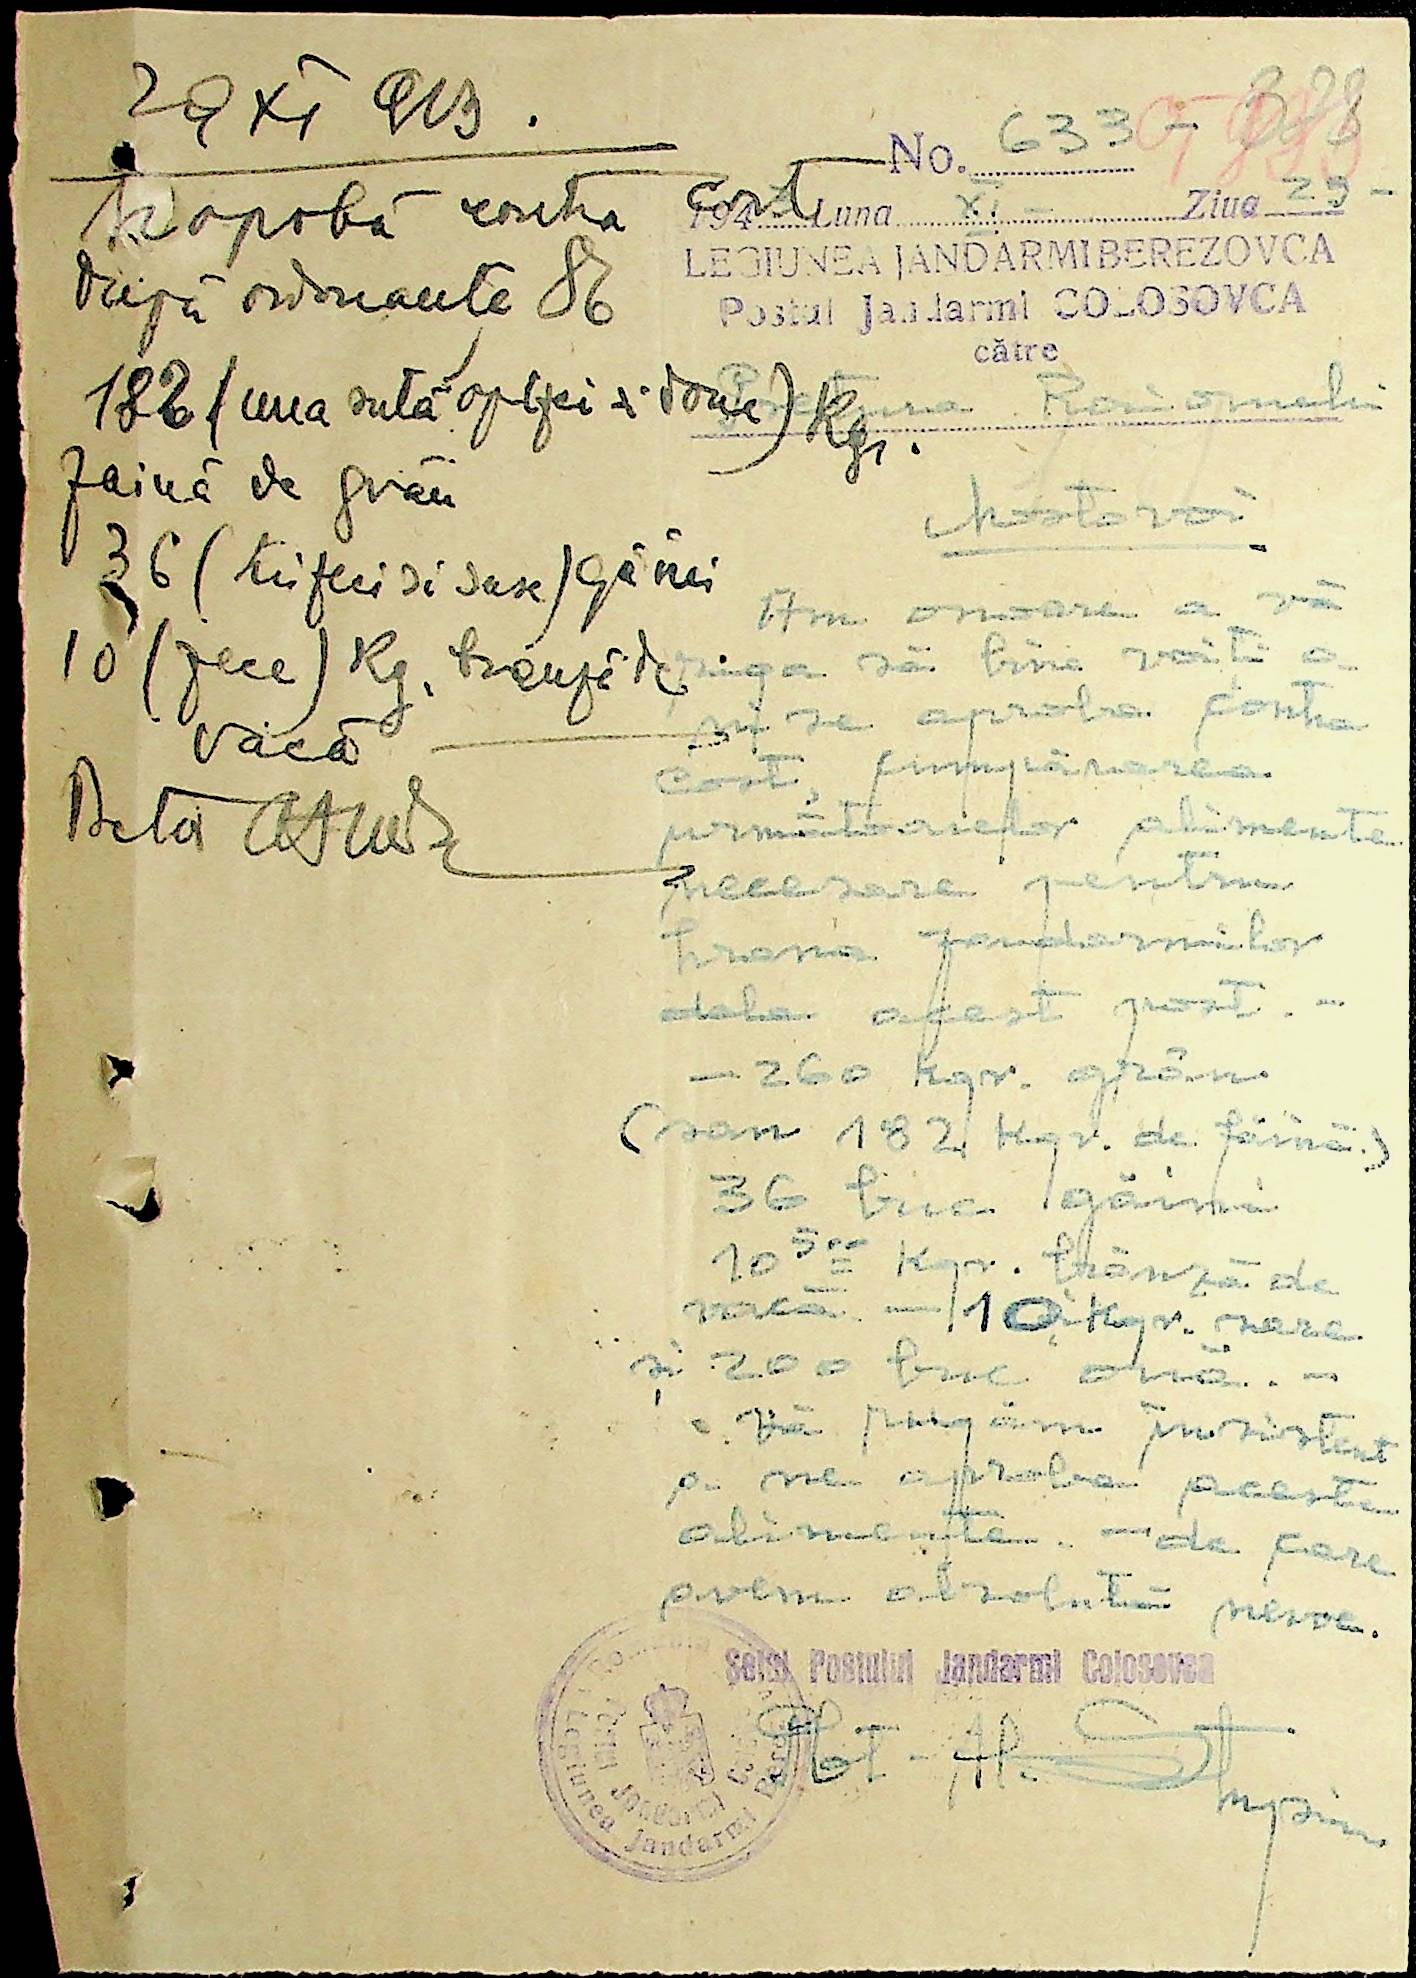 29 XI 943.
Se aprobă contra cost
după ordonanta 86
182 (una sută optzeci si doue) Kgr.
faină de grâu
36 (treizeci si sase) găini
10 (zece) Kg. branză de
vacă
No. 633
194 Luna XI - Ziua 29 -
LEGIUNEA JANDARMI BEREZOVCA
Postul Jandarmi COLOSOVCA
către
Pretura Raionului
Mostovoi
Am onoare a vă
ruga să bine voiți a
ni se aproba contra
cost, cumpărarea
următoarelor alimente
necesare pentru
hrana jandarmilor
dela acest post. -
- 260 kgr. grâu
(sau 182 kgr. de făină.)
36 buc găini
10 kgr. brânză de
vacă - 10 kgr. sare
și 200 buc ouă. -
Vă rugăm insistent
a ne aproba aceste
alimente. - de care
avem absolută nevoe.
Șeful Postului Jandarmi Colosovca
Plot. Al.
România
Legiunea Jandarmi Berezovca
Postul Jandarmi